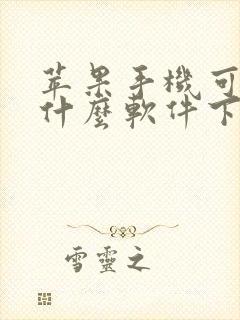 苹果手機可
什麼軟件下
雪靈之